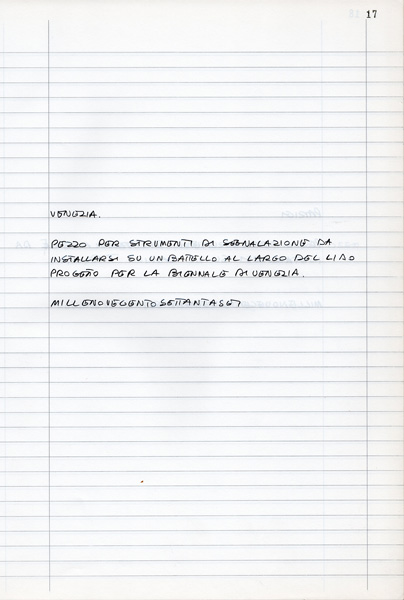 17
VENEZIA.
PEZZO PER STRUMENTI DI SEGNALAZIONE DA
INSTALLARSI SU UN BATTELLO AL LARGO DEL LIDO
PROGETTO PER LA BIENNALE DI VENEZIA.
MILLENOVECENTOSETTANTASEI